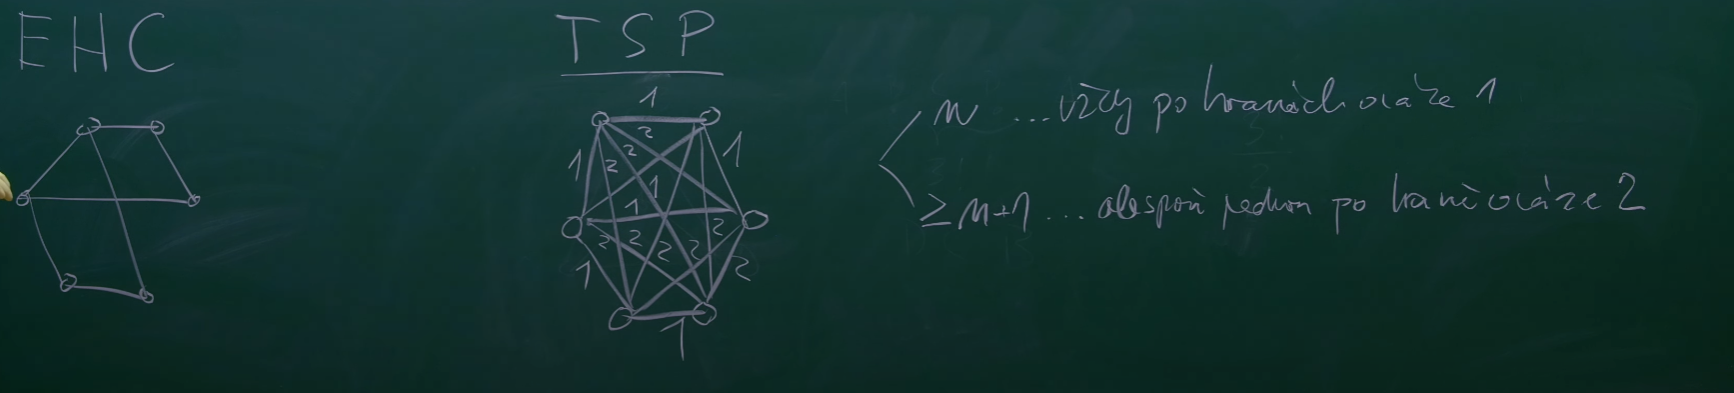 EHC
TSP
1
2
1
2
2
1
1
1
2
2
2
2
2
1
2
1
n ...vždy po hranách o váze 1
≥n+1 ... alespoň jednou po hraně o váze 2